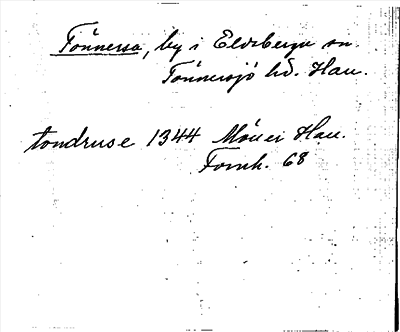 Tönnersa, by i Eldsberga sn.
Tönnersjö hd. Hall.
tondruse 1344 Hall.
Fornh. 68